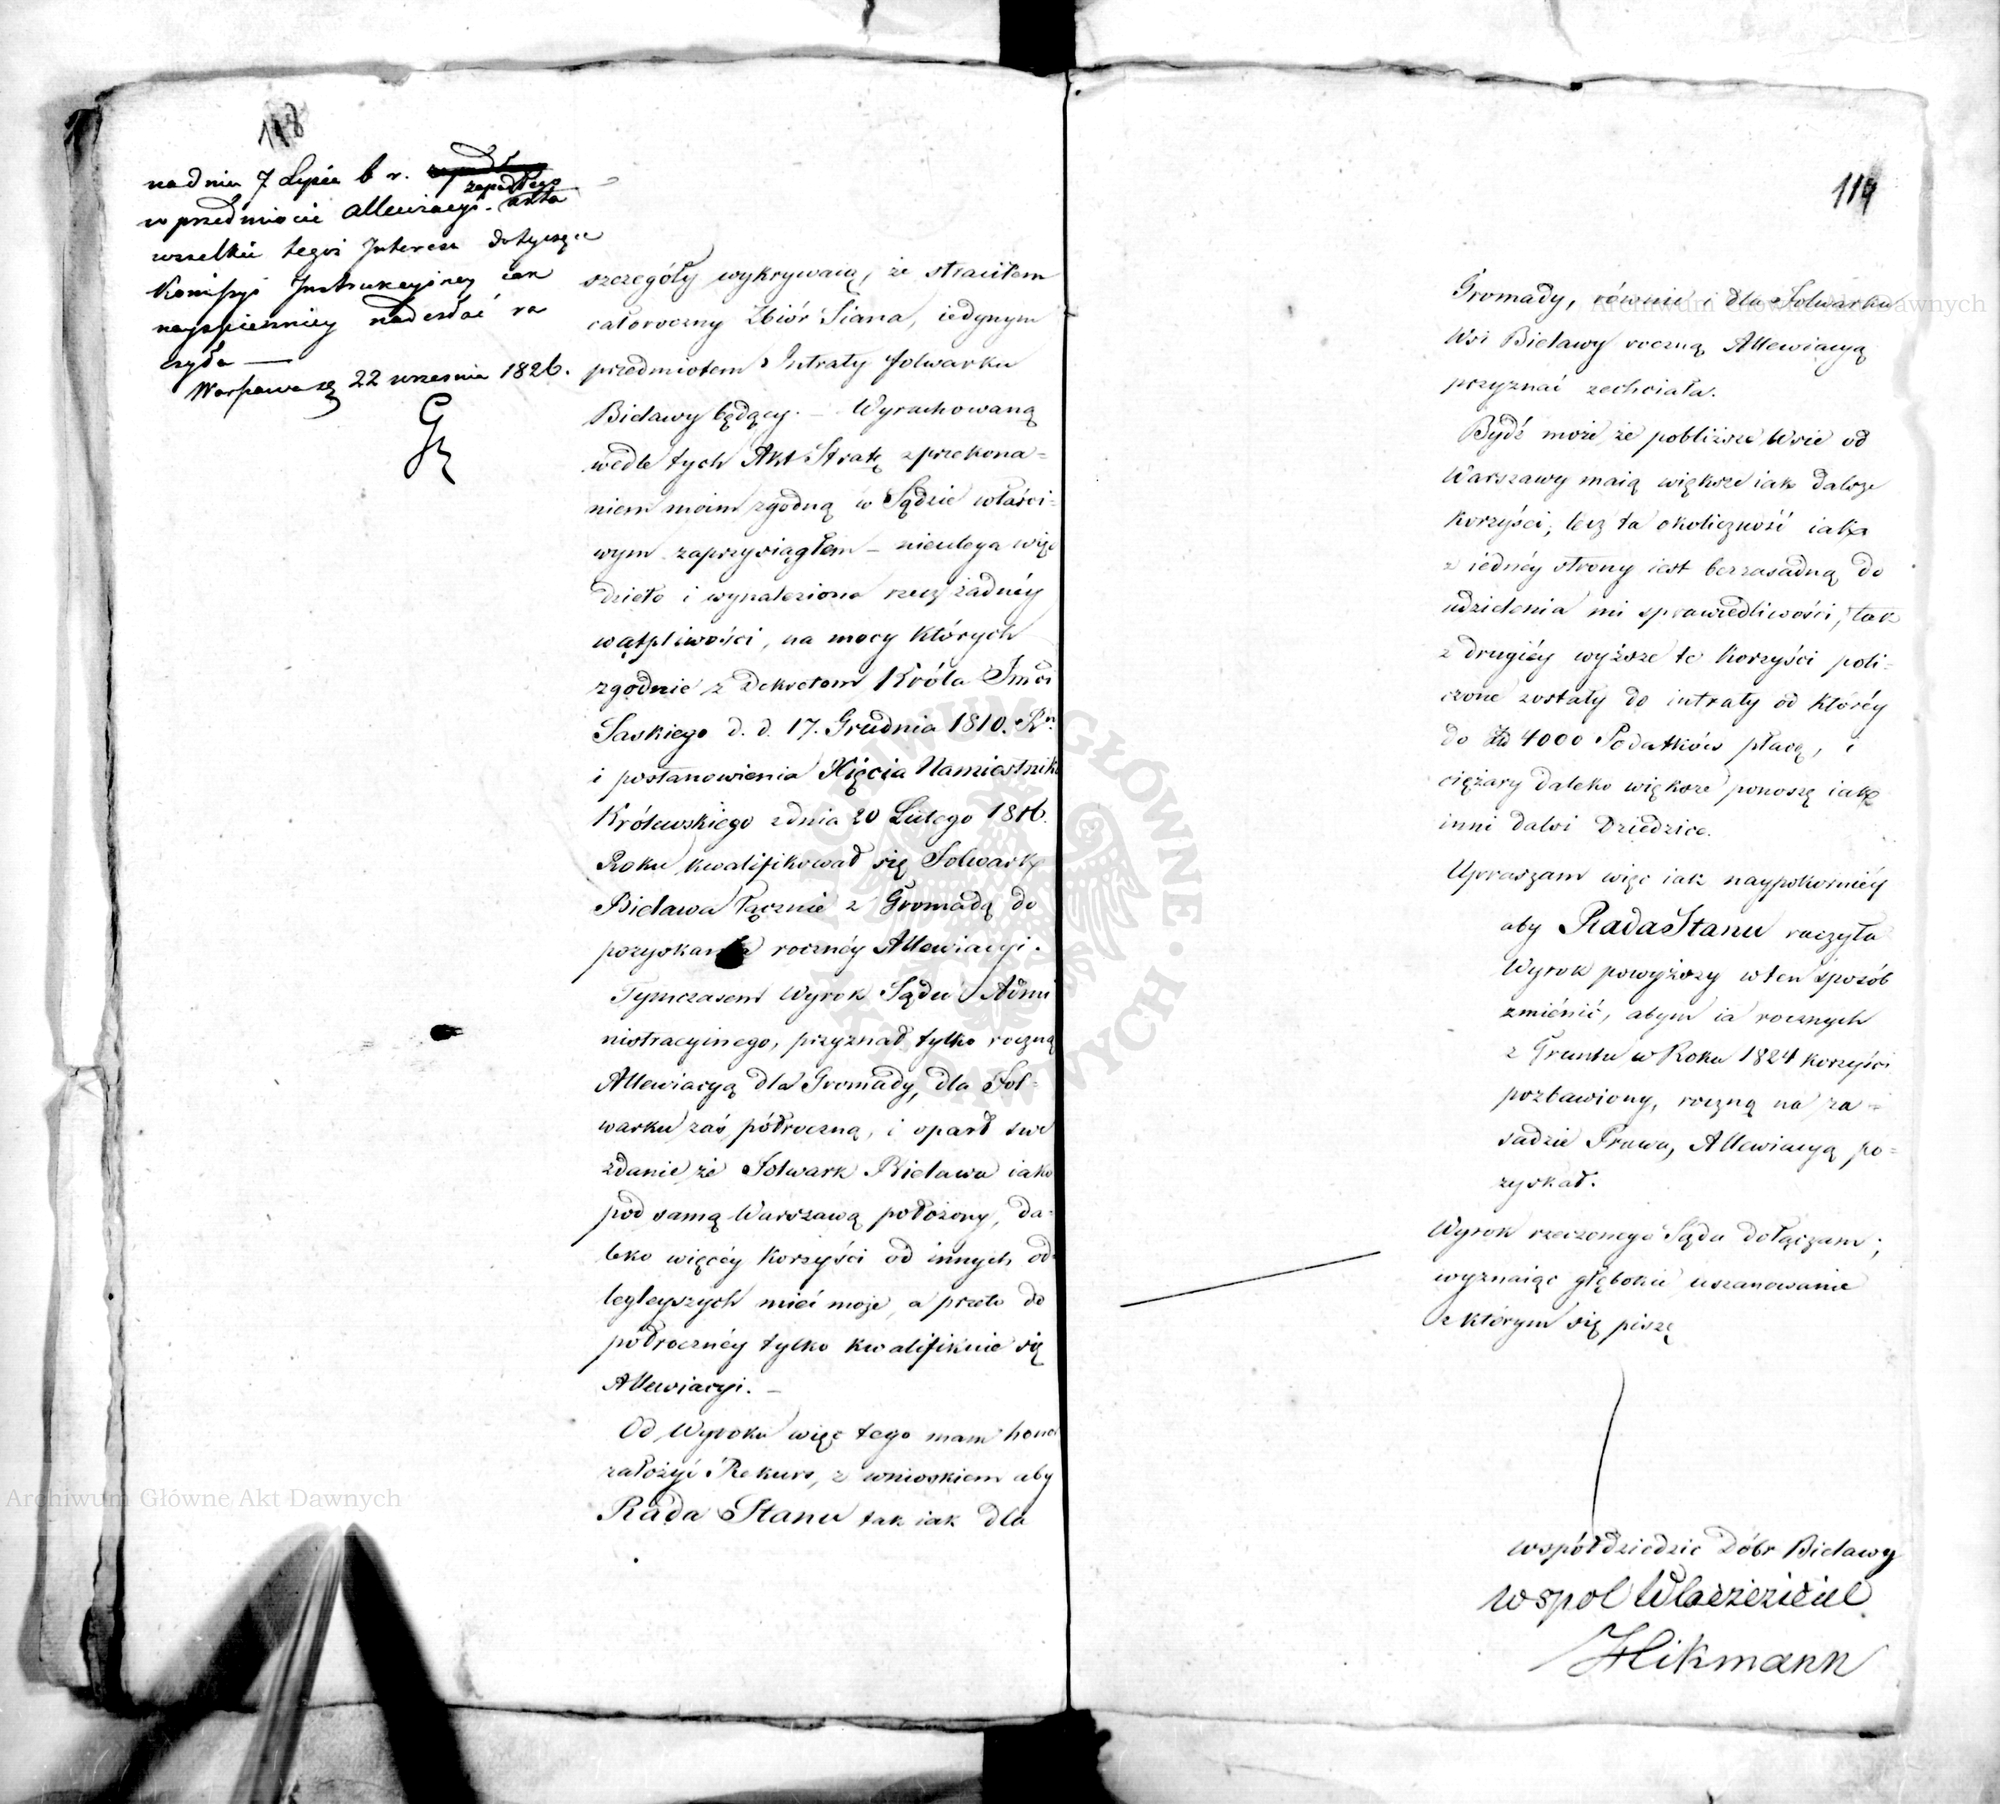 118
na dniu 7 Lipca b r.
zapadłego
w przedmiocie Allewiacyi. akta
wszelkie tegoż Interesu dotyczące
Komissyi Instrukcyiney iak
nayspieszniey nadesłać ra
czyła —
Warszawa 22 września 1826.
szczegóły wykrywaią, że straciłem
całoroczny Zbiór Siana, iedynym
przedmiotem Intraty folwarku
Bielawy będący. — Wyrachowaną
wedle tych Akt Stratę z przekona=
niem moim zgodną w Sądzie właści=
wym zaprzysiągłem — nieulega więc
dzieło i wynaleziona rzecz żadnéy
wątpliwości, na mocy których
zgodnie z Dekretem Króla Jmci
Saskiego d. d. 17. Grudnia 1810. R.
i postanowienia Xięcia Namiestnika
Królewskiego z dnia 20 Lutego 1816.
Roku kwalifikował się Folwark
Bielawa łącznie z Gromadą do
pozyskania rocznéy Allewiacyi.
Tymczasem Wyrok Sądu Admi
nistracyinego, przyznał tylko roczną
Allewiacyą dla Gromady, dla Fol=
warku zaś półroczną, i oparł swe
zdanie że Folwark Bielawa iako
pod samą Warszawą położony, da=
leko więcéy korzyści od innych od=
legleyszych mieć może, a przeto do
półrocznéy tylko kwalifikuie się
Allewiacyi. —
Od Wyroku więc tego mam honor
założyć Rekurs, z wnioskiem aby
Rada Stanu tak iak dla
Archiwum Główne Akt Dawnych
119
Gromady, równie i dla Folwarku
Wsi Bielawy roczną Allewiacyą
przyznać zechciała.
Bydź może że pobliższe Wsie od
Warszawy maią większe iak dalsze
korzyści, lecz ta okoliczność iak
z iednéy strony iest bezzasadną do
udzielenia mi sprawiedliwości, tak
z drugiéy wyższe te korzyści poli=
czone zostały do intraty od któréy
do 4000 Podatków płacę, i
ciężary daleko większe ponoszę iak
inni dalsi Dziedzice.
Upraszam więc iak naypokorniéy
aby Rada Stanu raczyła
Wyrok powyższy w ten sposób
zmiénić, abym ia rocznych
z Gruntu w Roku 1824 korzyści
pozbawiony, roczną na za=
sadzie Prawa, Allewiacyą po=
zyskał.
Wyrok rzeczonego Sądu dołączam;
wyznaiąc głębokie uszanowanie
z którym się piszę
współdziedzic Dóbr Bielawy
Archiwum Główne Akt Dawnych
ARCHIWUM GŁÓWNE AKT DAWNYCH